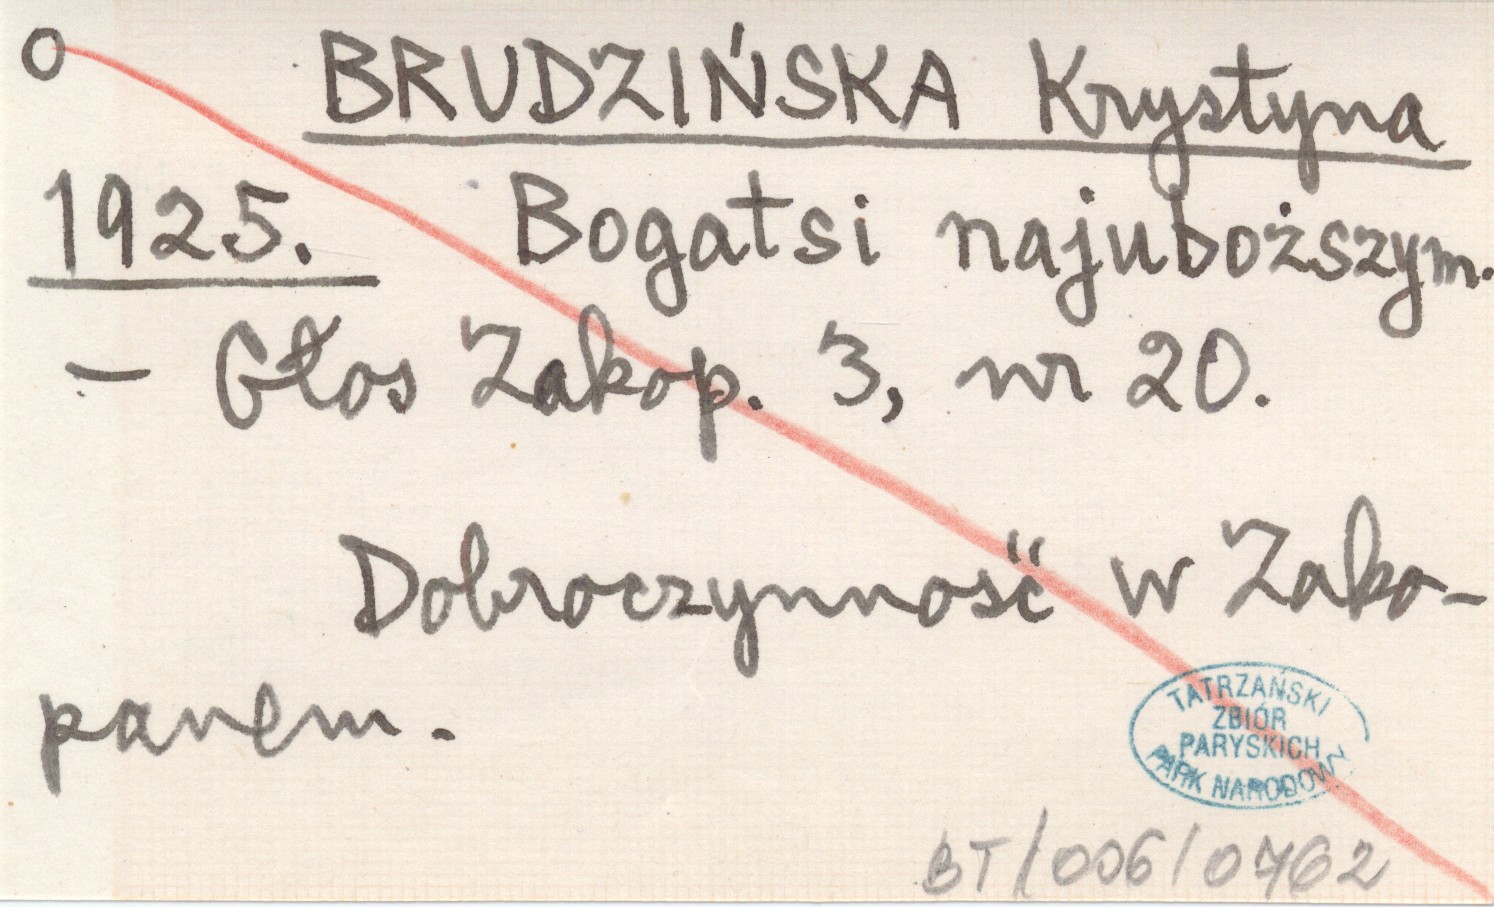 O BRUDZIŃSKA Krystyna
1925. Bogatsi najuboższym.
- Głos Zakop. 3, nr 20.
Dobroczynność w Zako-
panem.
TATRZAŃSKI
ZBIÓR
PARYSKICH
PARK NARODOWY
BT/006/0762